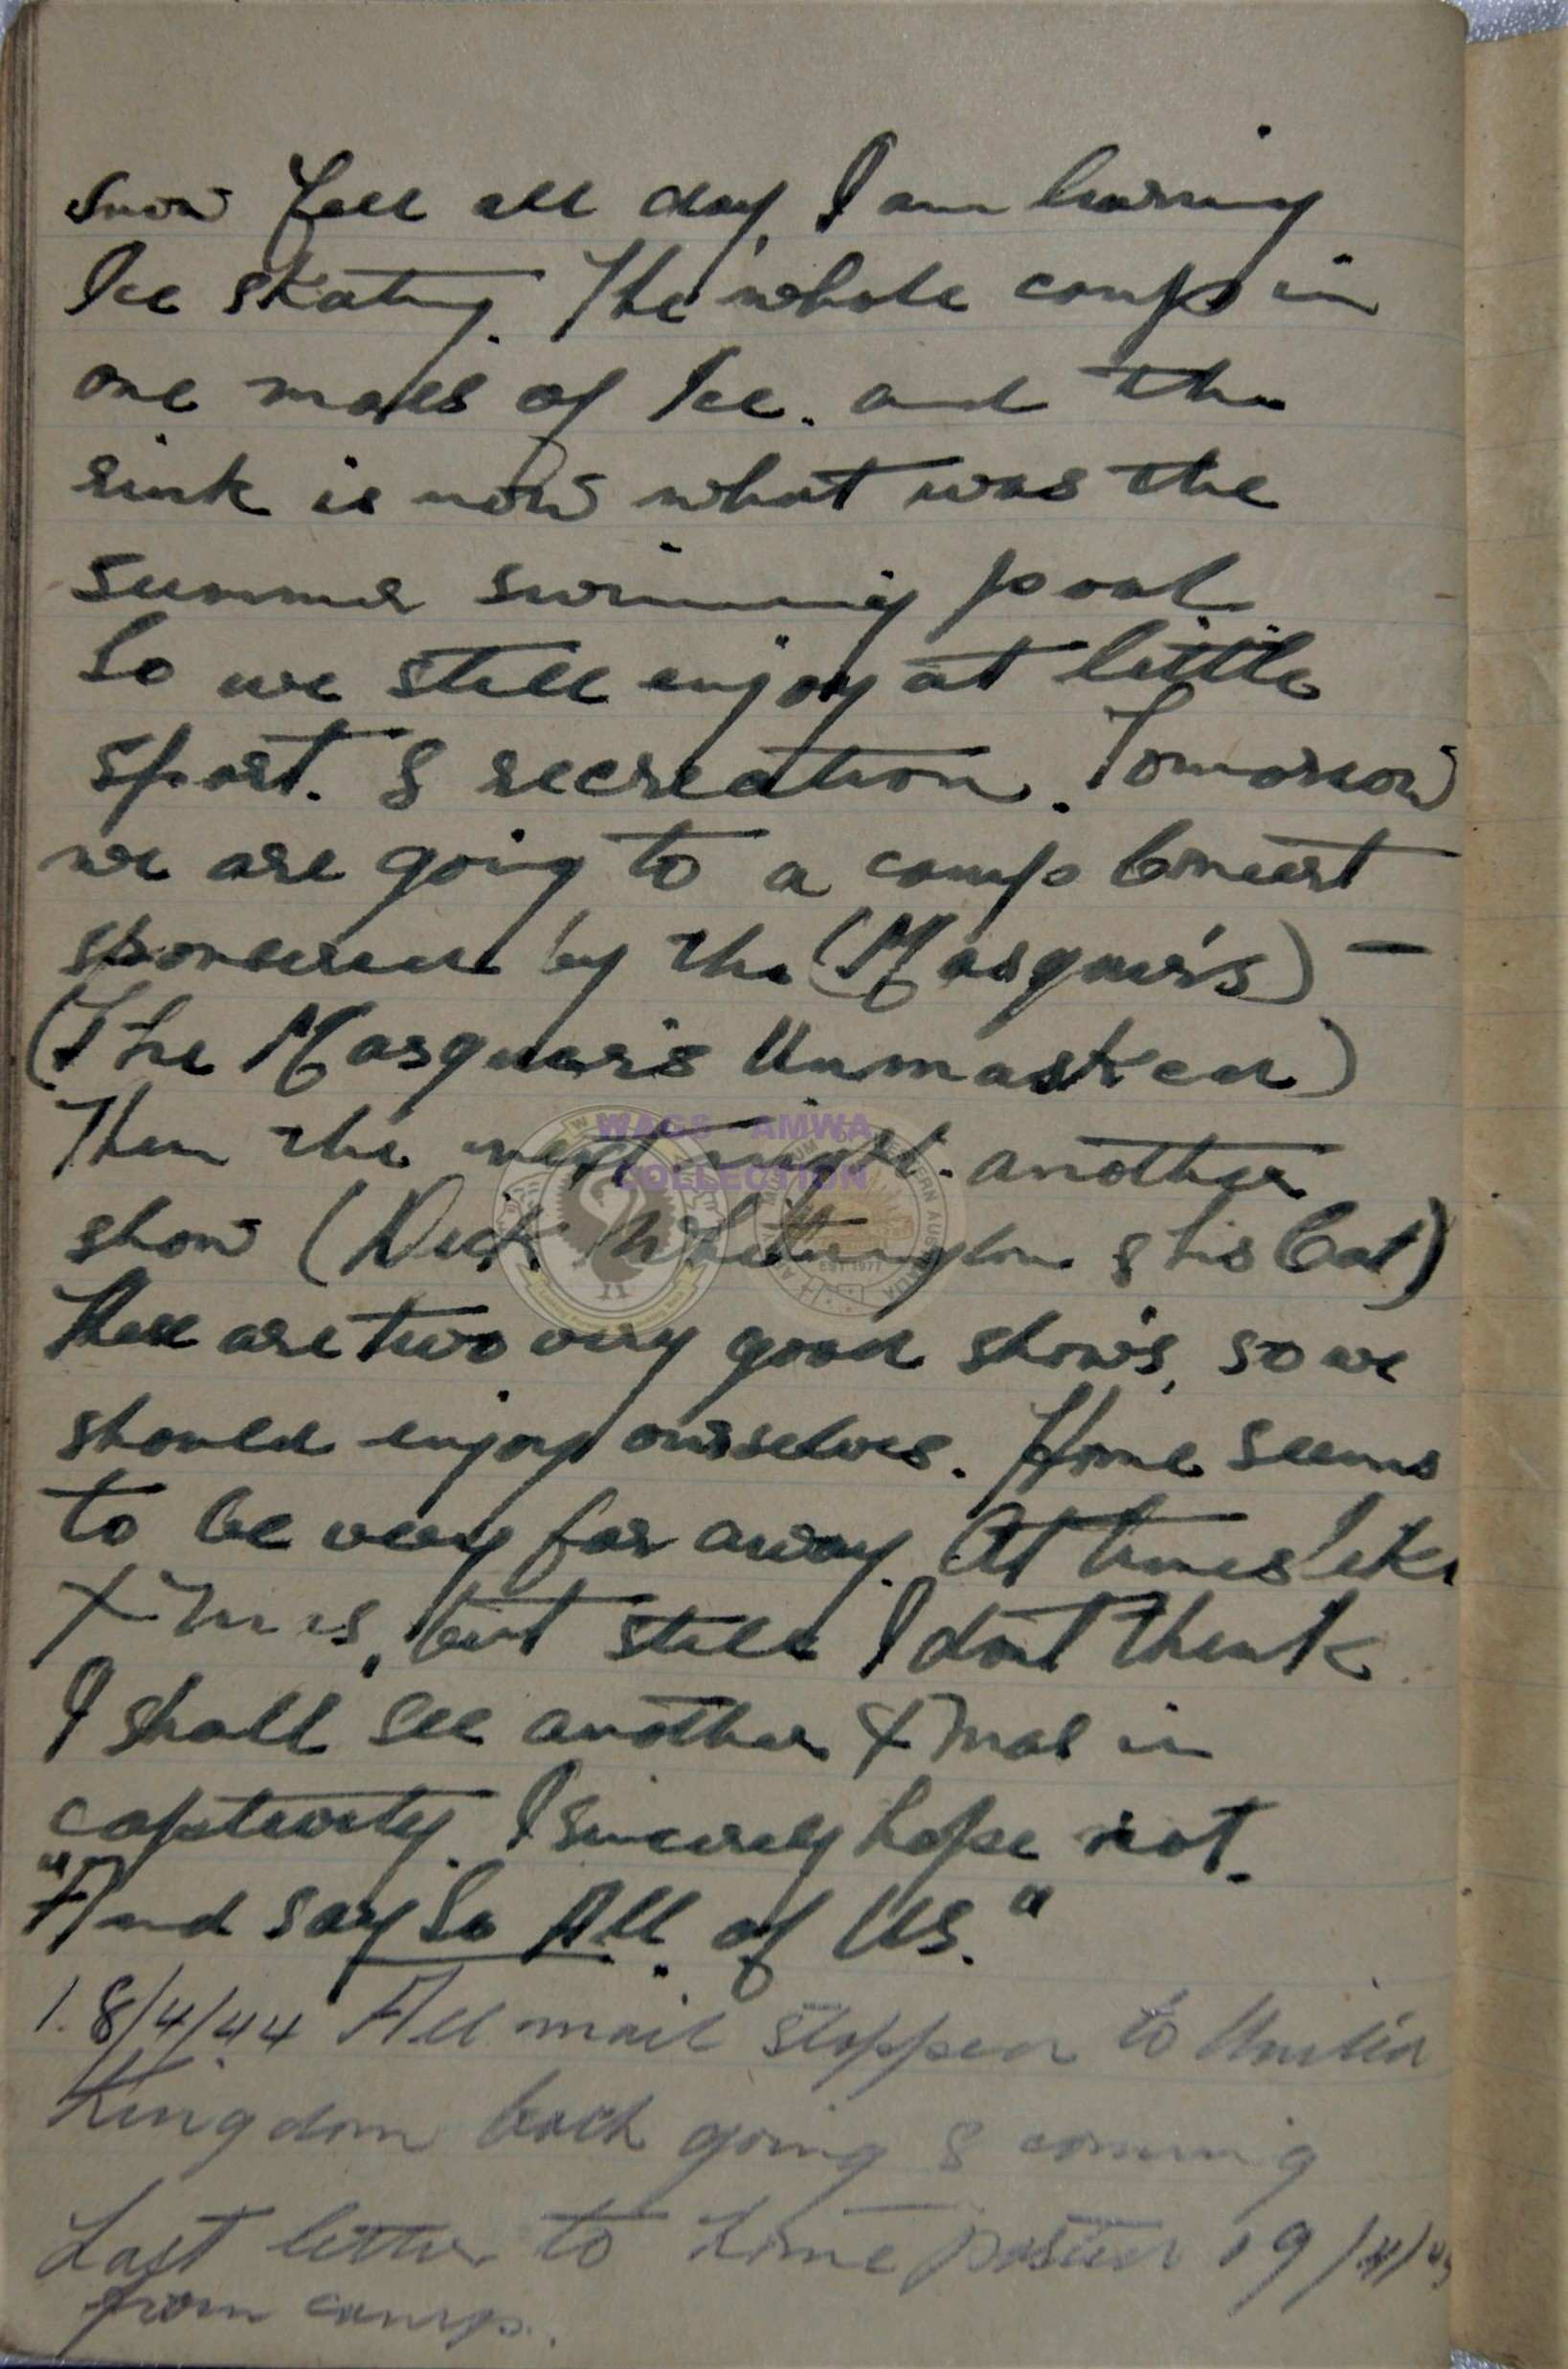 snow fell all day, I am learning
Ice skating. The whole camp in
one mass of Ice. and the
rink is now what was the
summer swimming pool
So we still enjoy at little
sport. & recreation. Tomorrow
we are going to a camp Concert
sponsered by the (Masquer's) -
(The Masquer's Unmasked)
Then the next night. another
show (Dick Whittington & his Cat)
These are two very good show's, so we
should enjoy ourselves. Home seems
to be very far away. At times like
X-mas, but still I don't think
I shall see another Xmas in
captivity. I sincerely hope not.
"And say So All. of Us."
18/4/44 All mail stopped to United
Kingdom both going & comming
Last letter to home posted 19/4/
from camp.
WAGS - AMWA
COLLECTION